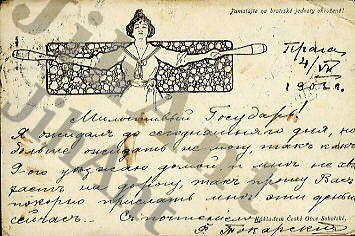 Pamatujte na bratrské jednoty okrožené!
Прага
4/VII
190 г.
Милостивый Государь!
Я ожидалъ до сегодняшняго дня, но
больше ожидать не могу, такъ какъ
9-го уѣзжаю домой, и мнѣ не хва
таетъ на дорогу, такъ прошу Васъ
покорно прислать мнѣ эти деньги
сейчасъ.
Съ почтеніемъ
Nákladem České Obce Sokolské.